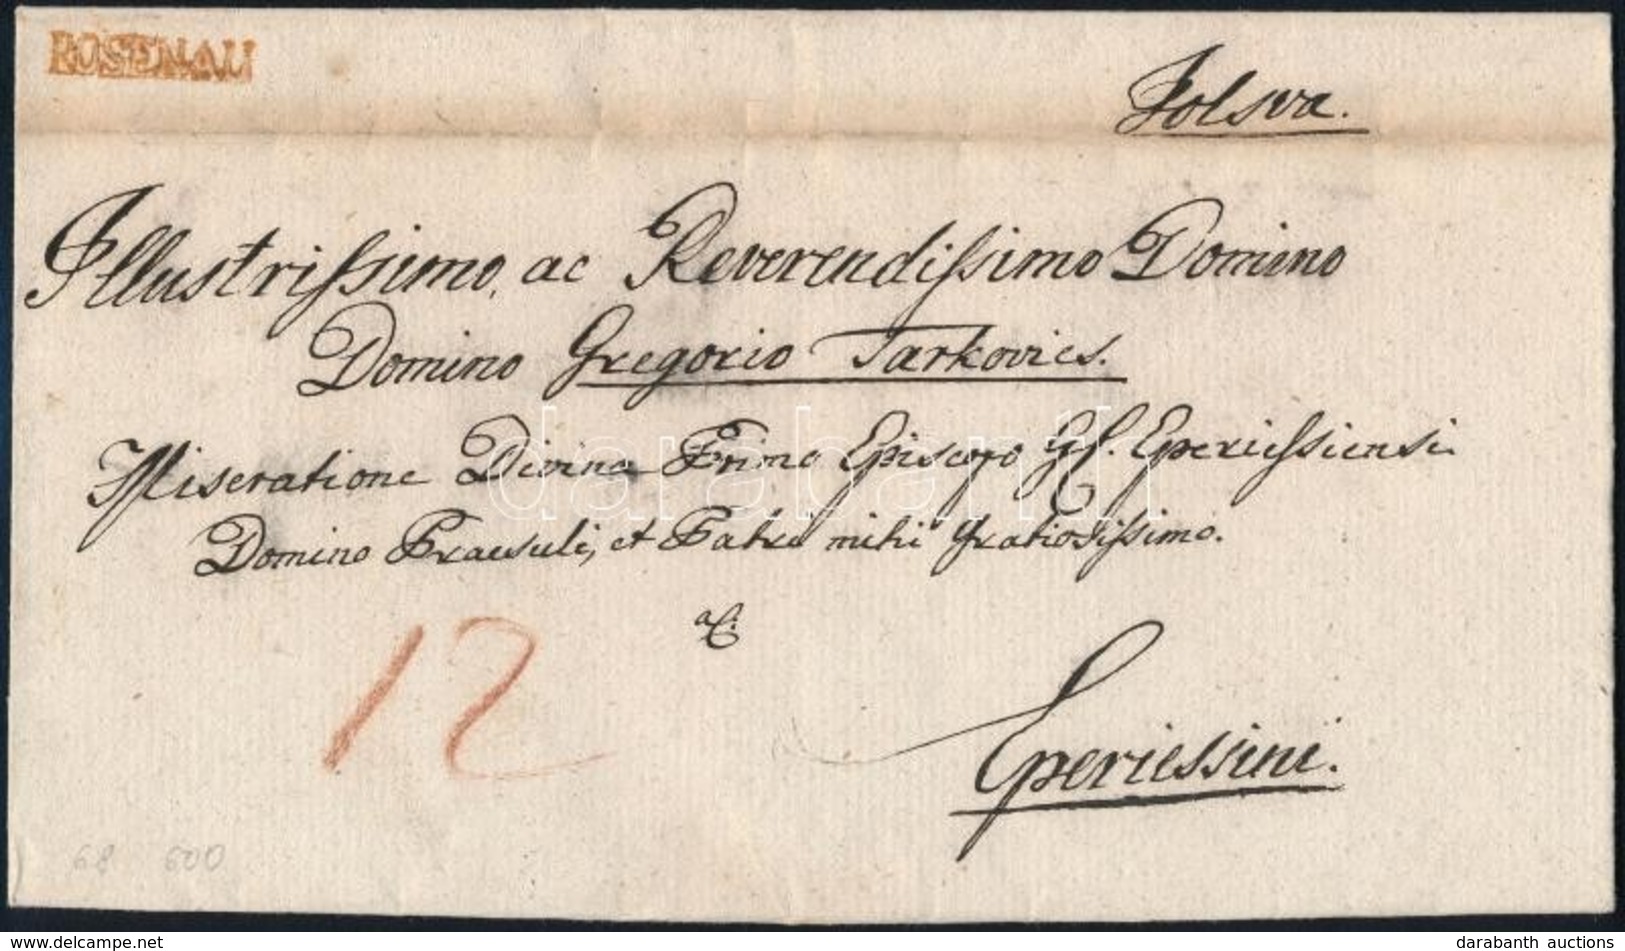 ROSENAU
Jolsva.
Illustrissimo, ac Reverendissimo Domino
Domino Gregorio Tarkovics.
Miseratione Divina Primo Episcopo Eperiessiensi.
Domino Praesuli, et Patri mihi Gratiosissimo.
Eperiessini.
12
68 600
darabanth
darabanth auctions